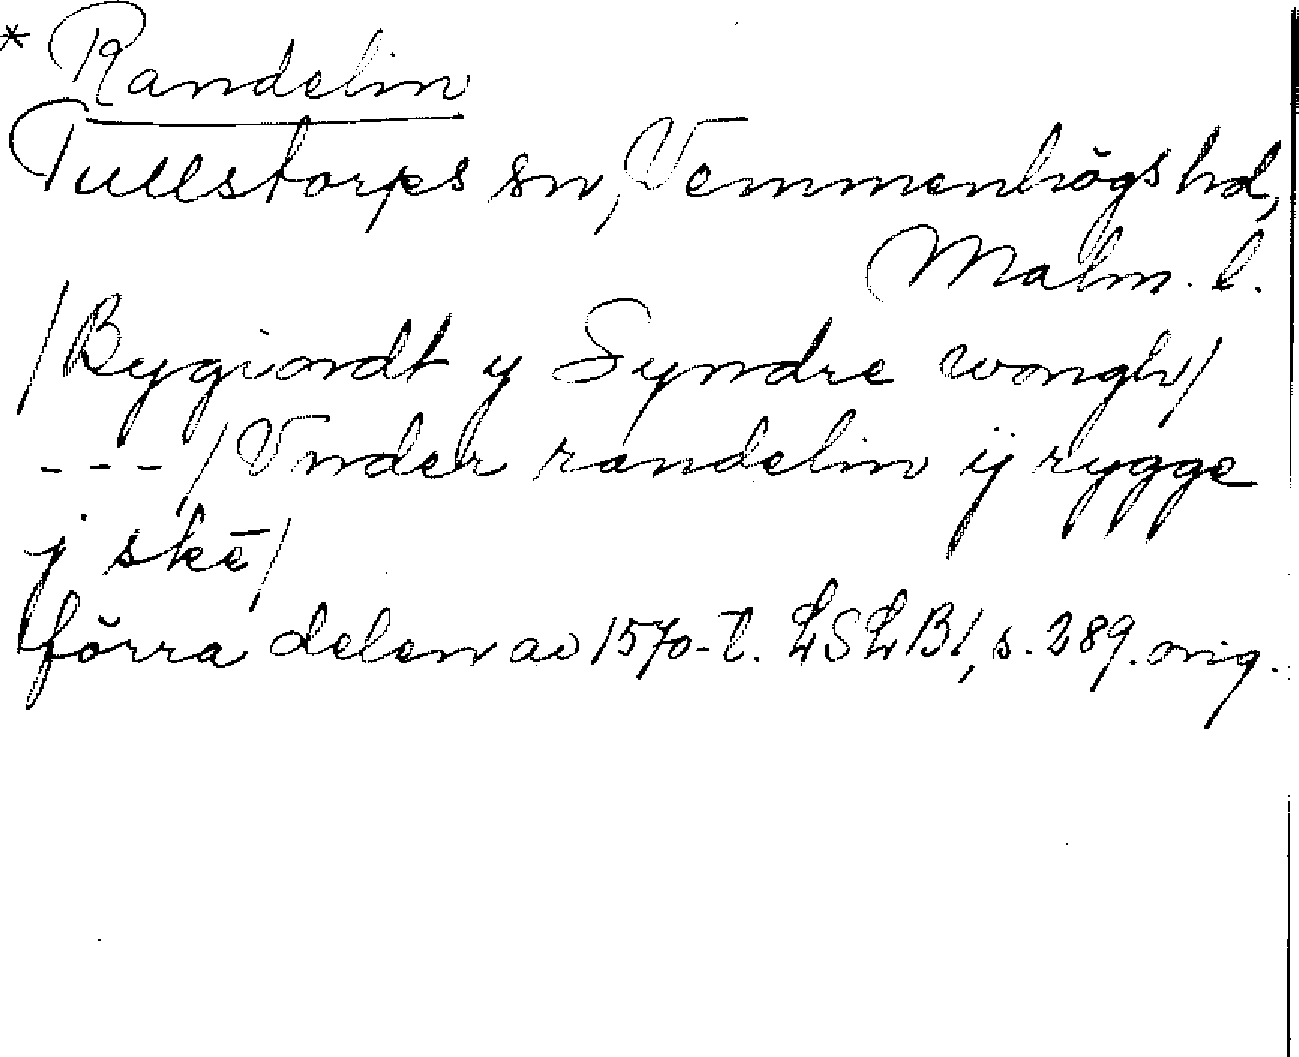 * Randelin
Tullstorps sn, Vemmenhögs hd,
Malm. l.
/Bygiordt y Syndre wongh/
--- /Vnder randelin ij rygge
j skē/
förra delen av 1570-t. LSLB1, s. 289. orig.